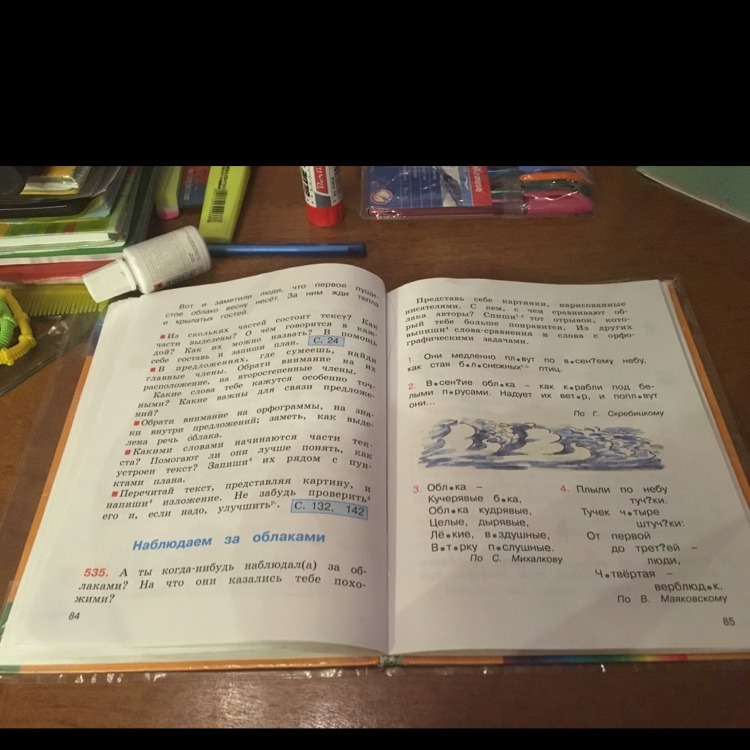 Вот и заметили люди, что первое пуши-
стое облако весну несёт. За ним жди тепла
и крылатых гостей.
■ Из скольких частей состоит текст? Как
части выделены? О чём говорится в каж-
дой? Как их можно назвать? В помощь
себе составь и запиши план. С. 24
■ В предложениях, где сумеешь, найди
главные члены. Обрати внимание на их
расположение, на второстепенные члены.
Какие слова тебе кажутся особенно точ-
ными? Какие важны для связи предложе-
ний?
■ Обрати внимание на орфограммы, на зна-
ки внутри предложений; заметь, как выде-
лена речь облака.
■ Какими словами начинаются части тек-
ста? Помогают ли они лучше понять, как
устроен текст? Запиши⁴ их рядом с пун-
ктами плана.
■ Перечитай текст, представляя картину, и
напиши⁴ изложение. Не забудь проверить⁴
его и, если надо, улучшить. С. 132, 142
Наблюдаем за облаками
535. А ты когда-нибудь наблюдал(а) за об-
лаками? На что они казались тебе похо-
жими?
84
Представь себе картинки, нарисованные
писателями. С кем, с чем сравнивают об-
лака авторы? Спиши тот отрывок, кото-
рый тебе больше понравится. Из других
выпиши⁴ слова-сравнения и слова с орфо-
графическими задачами.
1. Они медленно пл●вут по в●сен?ему небу,
как стая б●л●снежных птиц.
2. В●сен?ие обл●ка – как к●рабли под бе-
лыми п●русами. Надует их вет●р, и попл●вут
они...
По Г. Скребицкому
3. Обл●ка –
Кучерявые б●ка,
Обл●ка кудрявые,
Целые, дырявые,
Лё●кие, в●здушные,
В●т●рку п●слушные.
По С. Михалкову
4. Плыли по небу
туч?ки.
Тучек ч●тыре
штуч?ки:
От первой
до трет?ей –
люди,
Ч●твёртая –
верблюд●к.
По В. Маяковскому
85